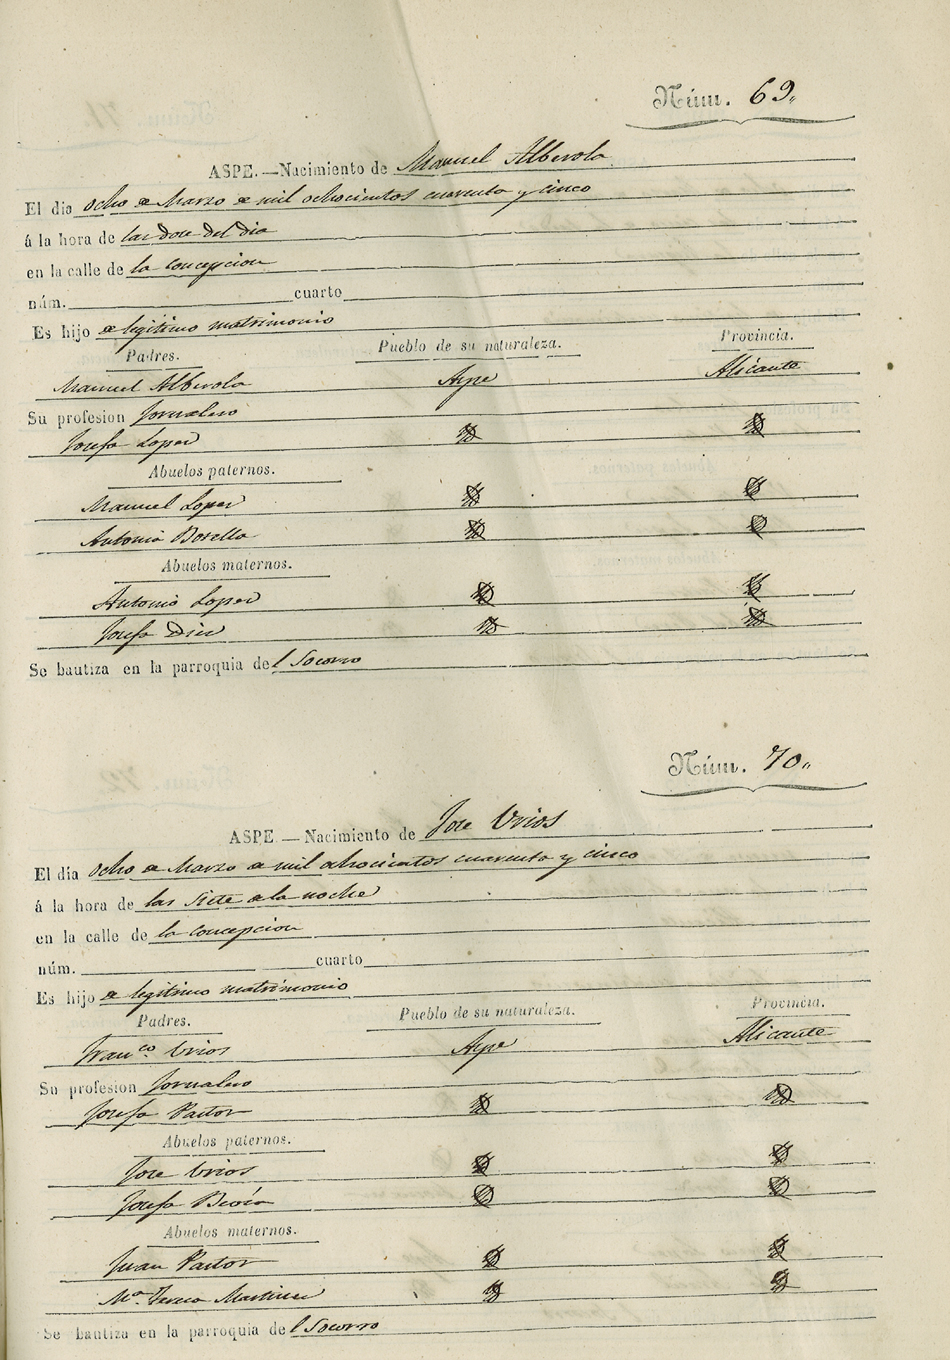 Núm. 69.
ASPE.—Nacimiento de Manuel Alberola
El dia ocho de Marzo de mil ochocientos cuarenta y cinco
á la hora de las doce del dia
en la calle de la Concepcion
núm. cuarto
Es hijo de legitimo matrimonio
Padres. Pueblo de su naturaleza. Provincia.
Manuel Alberola Aspe Alicante
Su profesion Jornalero
Josefa Lopez
Abuelos paternos.
Manuel Lopez
Antonia Botella
Abuelos maternos.
Antonio Lopez
Josefa Diez
Se bautiza en la parroquia del Socorro
Núm. 70.
ASPE.—Nacimiento de Jose Urios
El día ocho de Marzo de mil ochocientos cuarenta y cinco
á la hora de las siete de la noche
en la calle de la Concepcion
núm. cuarto
Es hijo de legitimo matrimonio
Padres. Pueblo de su naturaleza. Provincia.
Franco. Urios Aspe Alicante
Su profesion Jornalero
Josefa Pastor
Abuelos paternos.
Jose Urios
Josefa
Abuelos maternos.
Juan Pastor
Ma. Teresa Martinez
Se bautiza en la parroquia del Socorro